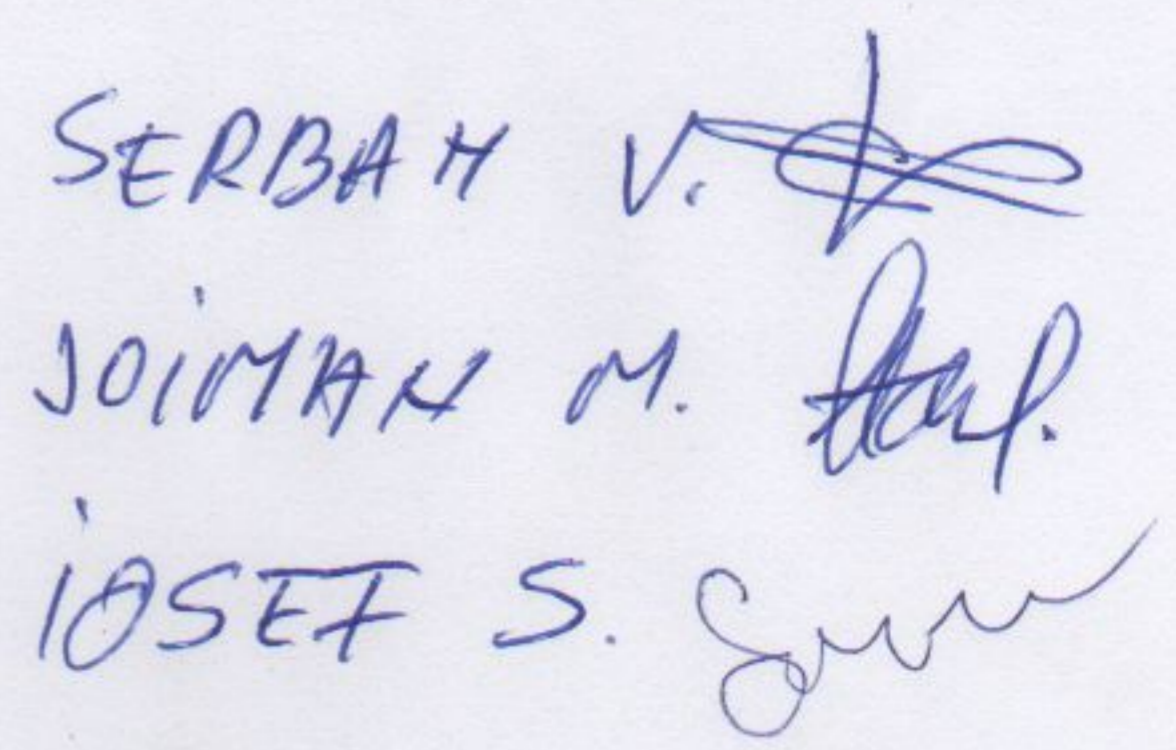 SERBAN V.
JOIMAN M.
IOSEF S.